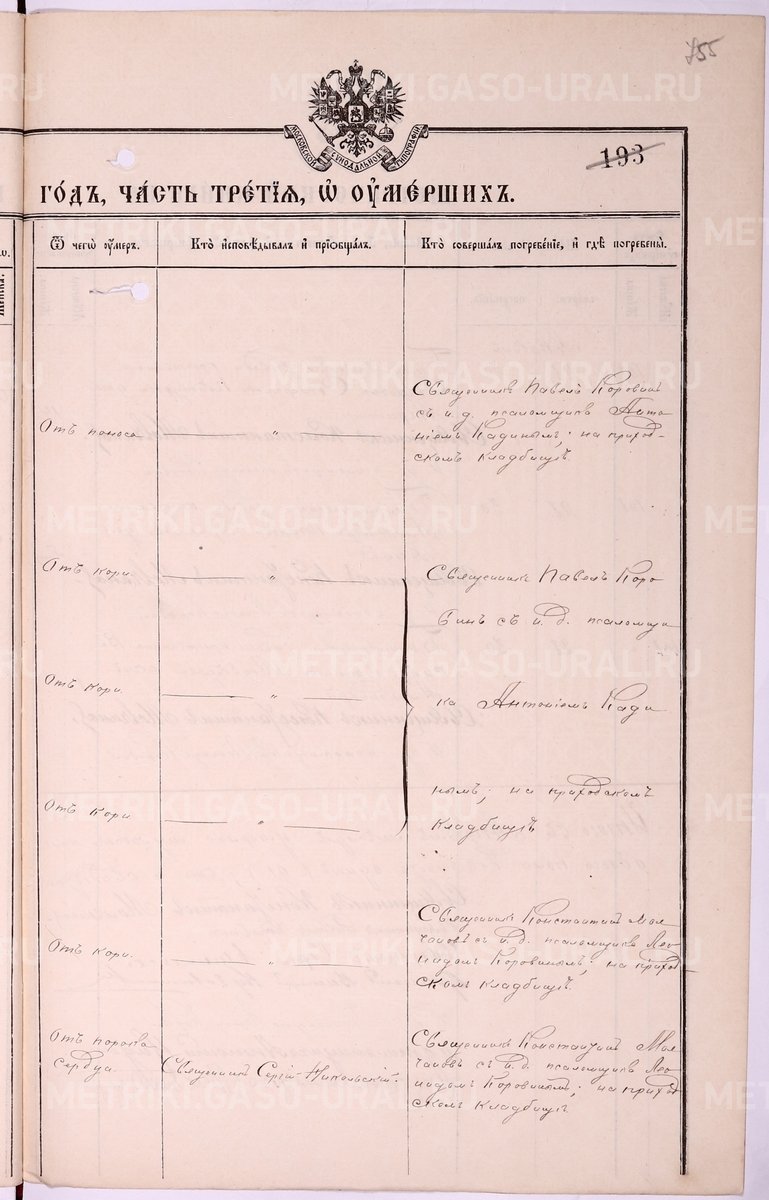 855
МОСКОВСКОЙ СѴНОДАЛЬНОЙ ТИПОГРАФІИ
193
ГО́ДЪ, ЧА́СТЬ ТРЕ́ТІѦ, Ѡ҆ ОУ҆МЕ́РШИХЪ.
Ѿ чегѡ̀ ᲂу҆́меръ.
Кто̀ и҆сповѣ́дывалъ и҆ прїѡбща́лъ.
Кто̀ соверша́лъ погребе́нїе, и҆ гдѣ̀ погребены̀.
Отъ поноса
— „ —
Священникъ Павелъ Коровинъ
съ и. д. псаломщика Анто-
ніемъ Кадинымъ; на приход-
скомъ кладбищѣ.
Отъ кори
— „ —
Отъ кори.
— „ —
Отъ кори
— „ —
Священникъ Павелъ Коро
винъ съ и. д. псаломщи
ка Антоніемъ Кади
нымъ; на приходскомъ
кладбищѣ
Отъ кори.
— „ —
Священникъ Константинъ Мол
чановъ съ и. д. псаломщика Лео
нидомъ Коровинымъ; на приход-
скомъ кладбищѣ.
Отъ порока
сердца
Священникъ Сергій Никольскій.
Священникъ Константинъ Мол
чановъ съ и. д. псаломщика Лео
нидомъ Коровинымъ; на приход
скомъ кладбищѣ
METRIKI.GASO-URAL.RU